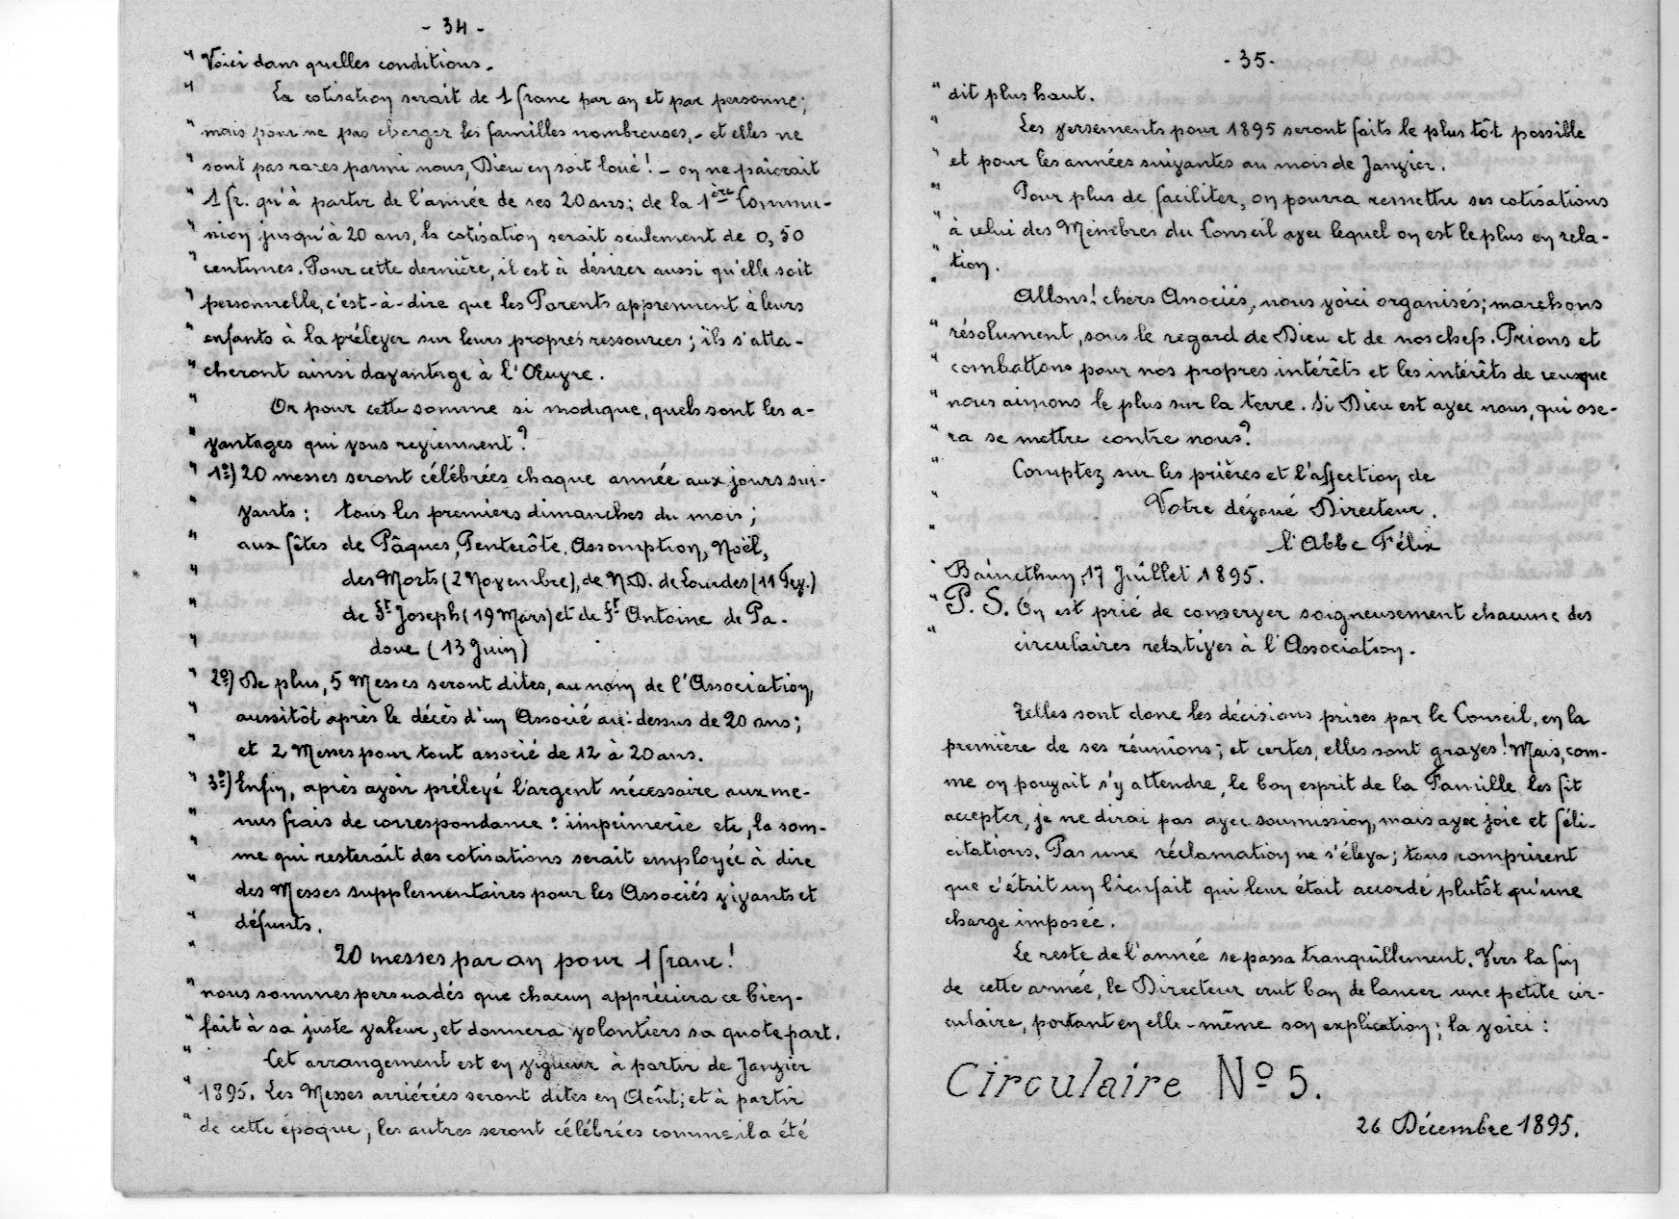 - 34 -
" Voici dans quelles conditions.
" La cotisation serait de 1 franc par an et par personne;
" mais pour ne pas charger les familles nombreuses, - et elles ne
" sont pas rares parmi nous, Dieu en soit loué! - on ne paierait
" 1 fr. qu'à partir de l'année de ses 20 ans; de la 1ère Commu-
" nion jusqu'à 20 ans, la cotisation serait seulement de 0,50
" centimes. Pour cette dernière, il est à désirer aussi qu'elle soit
" personnelle, c'est-à-dire que les Parents apprennent à leurs
" enfants à la prélever sur leurs propres ressources; ils s'atta-
" cheront ainsi davantage à l'Œuvre.
" Or pour cette somme si modique, quels sont les a-
" vantages qui vous reviennent?
" 1º) 20 messes seront célébrées chaque année aux jours sui-
" vants: tous les premiers dimanches du mois;
" aux fêtes de Pâques, Pentecôte, Assomption, Noël,
" des Morts (2 Novembre), de N.D. de Lourdes (11 Fev.)
" de St Joseph (19 Mars) et de St Antoine de Pa-
" doue (13 Juin)
" 2º) De plus, 5 Messes seront dites, au nom de l'Association,
" aussitôt après le décès d'un Associé au-dessus de 20 ans;
" et 2 Messes pour tout associé de 12 à 20 ans.
" 3º) Enfin, après avoir prélevé l'argent nécessaire aux me-
" nus frais de correspondance: imprimerie etc, la som-
" me qui resterait des cotisations serait employée à dire
" des Messes supplementaires pour les Associés vivants et
" défunts.
" 20 messes par an pour 1 franc!
" nous sommes persuadés que chacun appréciera ce bien-
" fait à sa juste valeur, et donnera volontiers sa quote part.
" Cet arrangement est en vigueur à partir de Janvier
" 1895. Les Messes arriérées seront dites en Août; et à partir
" de cette époque, les autres seront célébrées comme il a été
- 35 -
" dit plus haut.
" Les versements pour 1895 seront faits le plus tôt possible
" et pour les années suivantes au mois de Janvier.
" Pour plus de faciliter, on pourra remettre ses cotisations
" à celui des Membres du Conseil avec lequel on est le plus en rela-
" tion.
" Allons! chers Associés, nous voici organisés; marchons
" résolument, sous le regard de Dieu et de nos chefs. Prions et
" combattons pour nos propres intérêts et les intérêts de ceux que
" nous aimons le plus sur la terre. Si Dieu est avec nous, qui ose-
" ra se mettre contre nous?
" Comptez sur les prières et l'affection de
" Votre dévoué Directeur.
" l'Abbé Félix
" Bainethun, 17 Juillet 1895.
" P. S. On est prié de conserver soigneusement chacune des
" circulaires relatives à l'Association.
Telles sont donc les décisions prises par le Conseil, en la
première de ses réunions; et certes, elles sont graves! Mais, com-
me on pouvait s'y attendre, le bon esprit de la Famille les fit
accepter, je ne dirai pas avec soumission, mais avec joie et féli-
citations. Pas une réclamation ne s'éleva; tous comprirent
que c'était un bienfait qui leur était accordé plutôt qu'une
charge imposée.
Le reste de l'année se passa tranquillement. Vers la fin
de cette année, le Directeur crut bon de lancer une petite cir-
culaire, portant en elle-même son explication; la voici:
Circulaire Nº 5.
26 Décembre 1895.